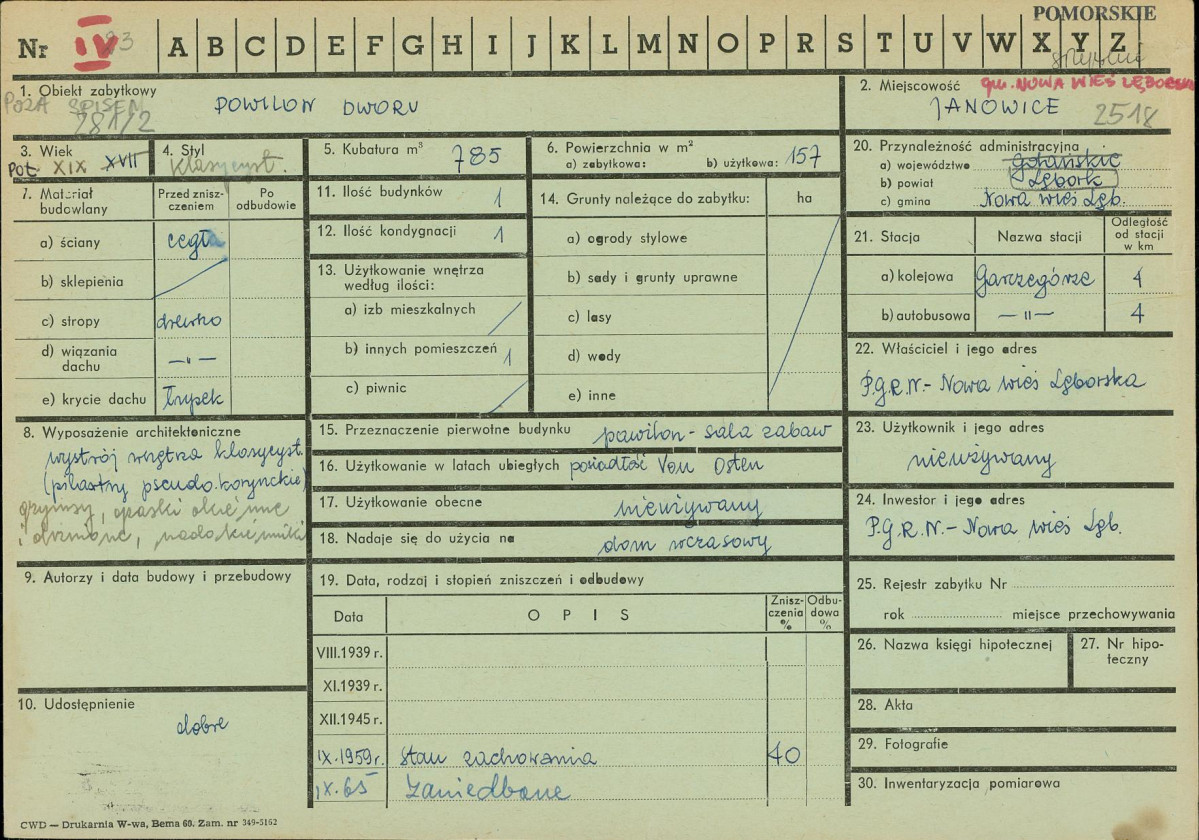 POMORSKIE
Nr IV 93 A B C D E F G H I J K L M N O P R S T U V W X Y Z
słupskie
1. Obiekt zabytkowy
POZA SPISEM
281/2
POWILON DWORU
2. Miejscowość gm. NOWA WIEŚ LĘBORSKA
JANOWICE 2518
3. Wiek
Poł. XIX XVII
4. Styl
Klasycyst.
5. Kubatura m³ 785
6. Powierzchnia w m²
a) zabytkowa: b) użytkowa: 157
20. Przynależność administracyjna
a) województwo gdańskie
b) powiat Lębork
c) gmina Nowa wieś Lęb.
7. Materiał budowlany
Przed zniszczeniem
Po odbudowie
a) ściany cegła
b) sklepienia
c) stropy drewno
d) wiązania dachu —„—
e) krycie dachu łupek
11. Ilość budynków 1
12. Ilość kondygnacji 1
13. Użytkowanie wnętrza według ilości:
a) izb mieszkalnych
b) innych pomieszczeń 1
c) piwnic
14. Grunty należące do zabytku: ha
a) ogrody stylowe
b) sady i grunty uprawne
c) lasy
d) wody
e) inne
21. Stacja
Nazwa stacji
Odległość od stacji w km
a) kolejowa Garzegórze 4
b) autobusowa —„— 4
22. Właściciel i jego adres
P.G.R.N.- Nowa wieś Lęborska
8. Wyposażenie architektoniczne
wystrój wnętrza klasycyst.
(pilastry pseudo.korynckie)
gzymsy, opaski okienne
i drzwiowe, nadokienniki
15. Przeznaczenie pierwotne budynku pawilon - sala zabaw
16. Użytkowanie w latach ubiegłych posiadłość Von Osten
17. Użytkowanie obecne nieużywany
18. Nadaje się do użycia na dom wczasowy
23. Użytkownik i jego adres
nieużywany
24. Inwestor i jego adres
P.G.R.N.- Nowa wieś Lęb.
9. Autorzy i data budowy i przebudowy
10. Udostępnienie
dobre
19. Data, rodzaj i stopień zniszczeń i odbudowy
Data
OPIS
Zniszczenia %
Odbudowa %
VIII.1939 r.
XI.1939 r.
XII.1945 r.
IX.1959r. Stan zachowania 40
IX.65 Zaniedbane
25. Rejestr zabytku Nr
rok miejsce przechowywania
26. Nazwa księgi hipotecznej
27. Nr hipoteczny
28. Akta
29. Fotografie
30. Inwentaryzacja pomiarowa
CWD — Drukarnia W-wa, Bema 60. Zam. nr 349-5162